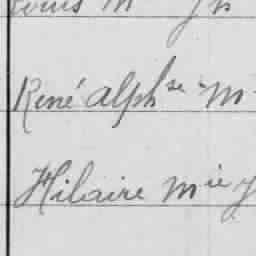 Louis M
René Alphse M
Hilaire Mie J